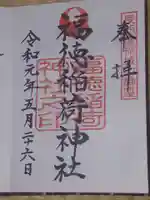 奉拝
福徳稲荷神社
令和元年五月二十六日